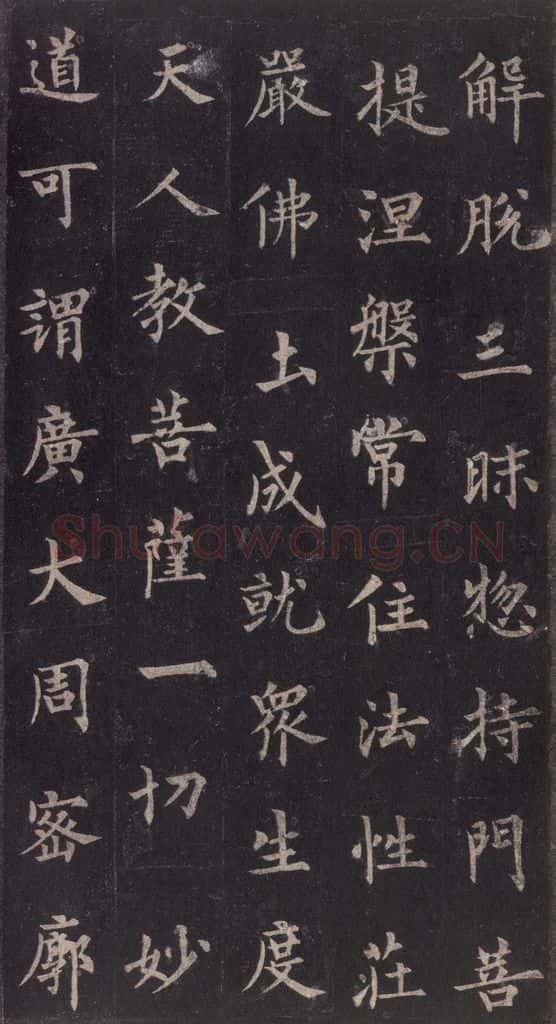 解脫三昧惣持門菩
提涅槃常住法性莊
嚴佛土成就眾生度
天人教菩薩一切妙
道可謂廣大周密廓
Shufawang.CN